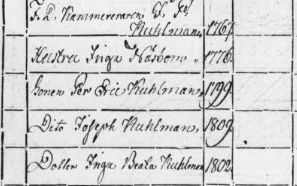 F. d. Kammereraren
Kuhlman 1767.
Hustru Inga Nasbom 1776.
Sonen Per Eric Kuhlman, 1799.
Dito Joseph Kuhlman, 1809.
Dotter Inga Beata Kuhlman 1802.